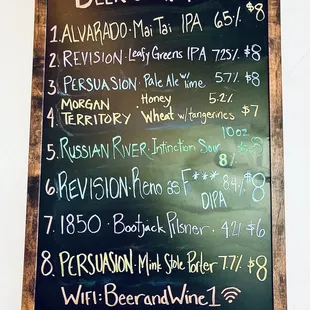 BEER
1. ALVARADO · Mai Tai IPA 6.5% $8
2. REVISION · Leafy Greens IPA 7.25% $8
3. PERSUASION · Pale Ale w/ lime 5.7% $8
4. MORGAN TERRITORY · Honey Wheat w/ tangerines 5.2% $7
5. RUSSIAN RIVER · Intinction Sour 8% 10oz.
6. REVISION · Reno as F*** DIPA 8.4% $8
7. 1850 · Bootjack Pilsner · 4.21 $6
8. PERSUASION · Mint Stole Porter 7.7% $8
WIFI: BeerandWine1